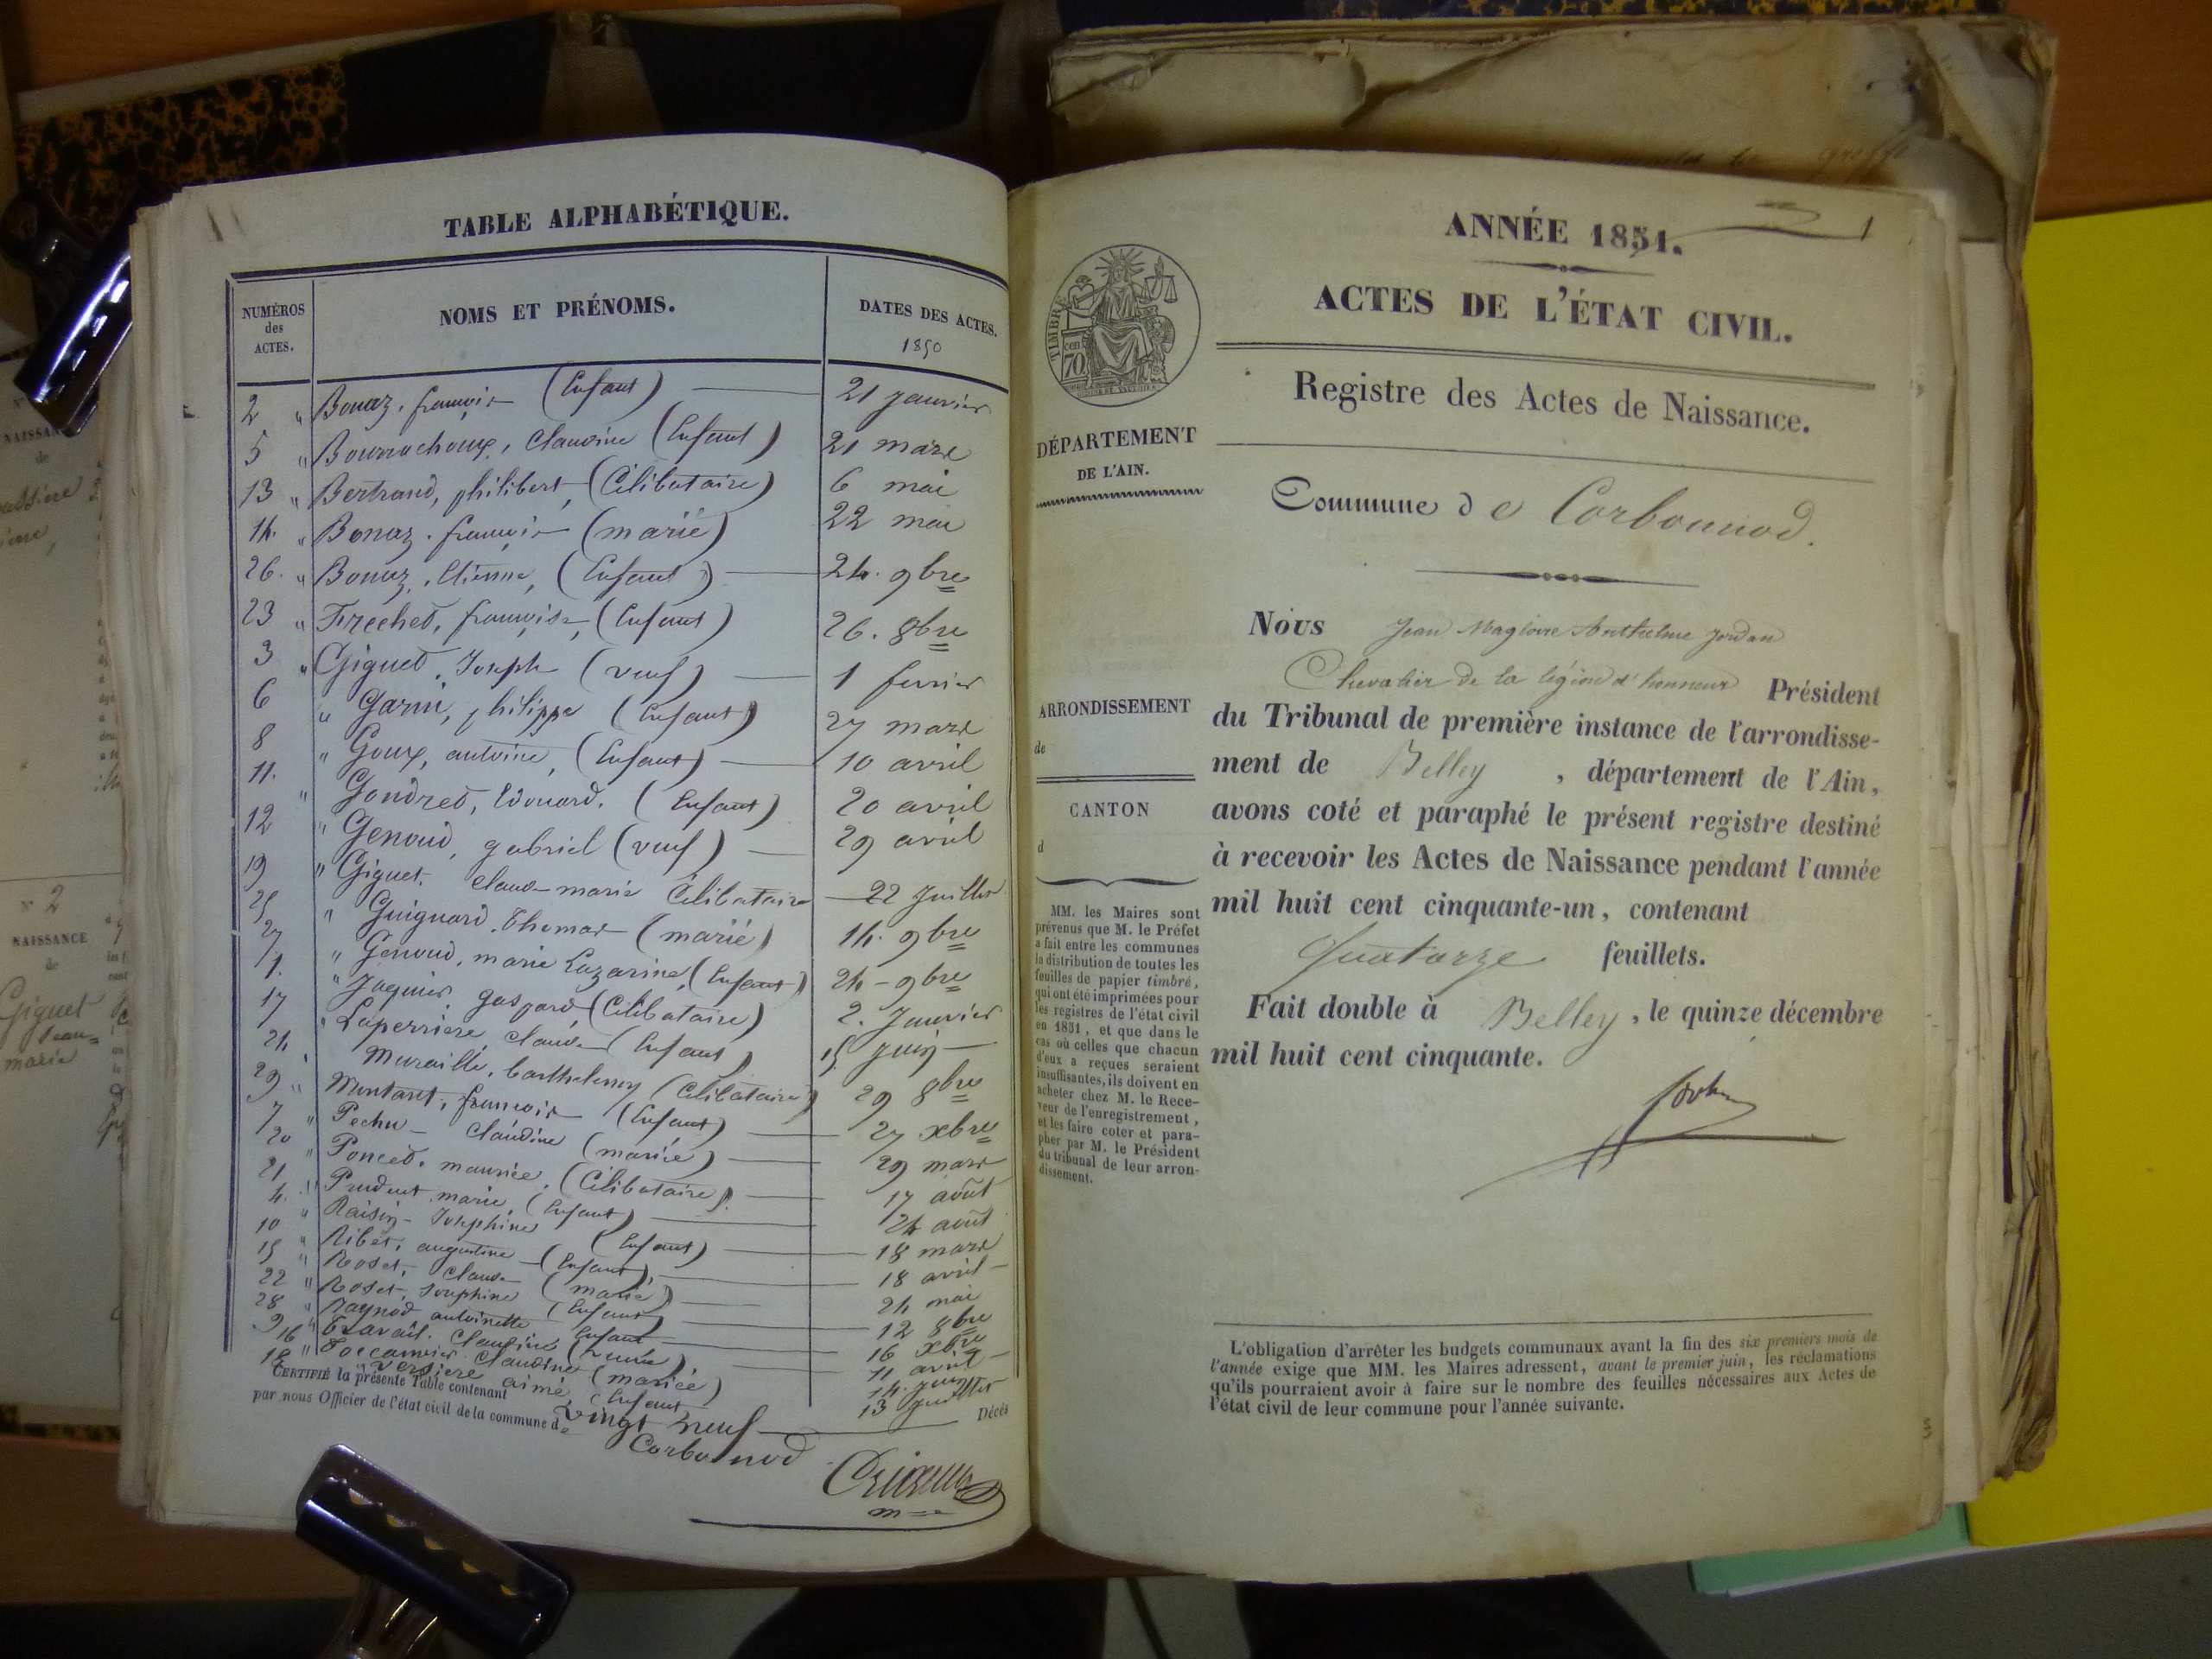 TABLE ALPHABÉTIQUE.
NUMÉROS
des
ACTES.
NOMS ET PRÉNOMS.
DATES DES ACTES.
1850
2 " Bonaz, françois (Enfant) 21 janvier
5 " Bourrachoux, Claudine (Enfant) 21 mars
13 " Bertrand, philibert, (Célibataire) 6 mai
14. " Bonaz, françois (marié) 22 mai
26. " Bonaz, Etienne, (Enfant) 24. 9bre
23 " Frechet, françoise, (Enfant) 26. 8bre
3 " Giguet, Joseph (veuf) 1 fevrier
6 " Garin, philippe (Enfant) 27 mars
8 " Goux, antoine, (Enfant) 10 avril
11. " Gondret, Edouard. (Enfant) 20 avril
12 " Genoud, gabriel (veuf) 29 avril
19 " Giguet, Claude marie Célibataire 22 Juillet
25 " Guignard, Thomas (marié) 14. 9bre
27 " Genoud, marie Lazarine, (Enfant) 24 - 9bre
1. " Jaquier, gaspard (Célibataire) 2. Janvier
17 " Laperriere, claude (Enfant) 15 juin
24 " Muraille, barthelemy (Célibataire) 29 8bre
29 " Montant, françois (Enfant) 27 xbre
7 " Pechu - Claudine (mariée) 29 mars
20 " Poncet, maurice, (Célibataire) 17 août
21 " Prudent marie, (Enfant) 24 août
4. " Raisin - Josephine (Enfant) 18 mars
10 " Ribet, augustine (Enfant) 18 avril
15 " Roset, Claude (marié) 24 mai
22 " Roset, Josephine (Enfant) 12 8bre
28 " Raynod antoinette Enfant 16 xbre
9 " Travail. Claudine (veuve) 11 avril
16 " Claudine (mariée) 14. juin
18 " Versiere aimé (Enfant 13 juillet
CERTIFIÉ la présente Table contenant Vingt neuf Décès
par nous Officier de l'état civil de la commune de Corbonod
NAISSANCE
de
N° 2
NAISSANCE
de
Giguet
Jean=
marie
1
ANNÉE 1851.
ACTES DE L'ÉTAT CIVIL.
Registre des Actes de Naissance.
TIMBRE
cen
70
DÉPARTEMENT
DE L'AIN.
ARRONDISSEMENT
de
CANTON
d
MM. les Maires sont
prévenus que M. le Préfet
a fait entre les communes
la distribution de toutes les
feuilles de papier timbré,
qui ont été imprimées pour
les registres de l'état civil
en 1851, et que dans le
cas où celles que chacun
d'eux a reçues seraient
insuffisantes, ils doivent en
acheter chez M. le Rece-
veur de l'enregistrement,
et les faire coter et para-
pher par M. le Président
du tribunal de leur arron-
dissement.
Commune de Corbonnod.
Nous Jean Magloire Anthelme Jordan
Chevalier de la légion d'honneur Président
du Tribunal de première instance de l'arrondisse-
ment de Belley, département de l'Ain,
avons coté et paraphé le présent registre destiné
à recevoir les Actes de Naissance pendant l'année
mil huit cent cinquante-un, contenant
Quatorze feuillets.
Fait double à Belley, le quinze décembre
mil huit cent cinquante.
L'obligation d'arrêter les budgets communaux avant la fin des six premiers mois de
l'année exige que MM. les Maires adressent, avant le premier juin, les réclamations
qu'ils pourraient avoir à faire sur le nombre des feuilles nécessaires aux Actes de
l'état civil de leur commune pour l'année suivante.